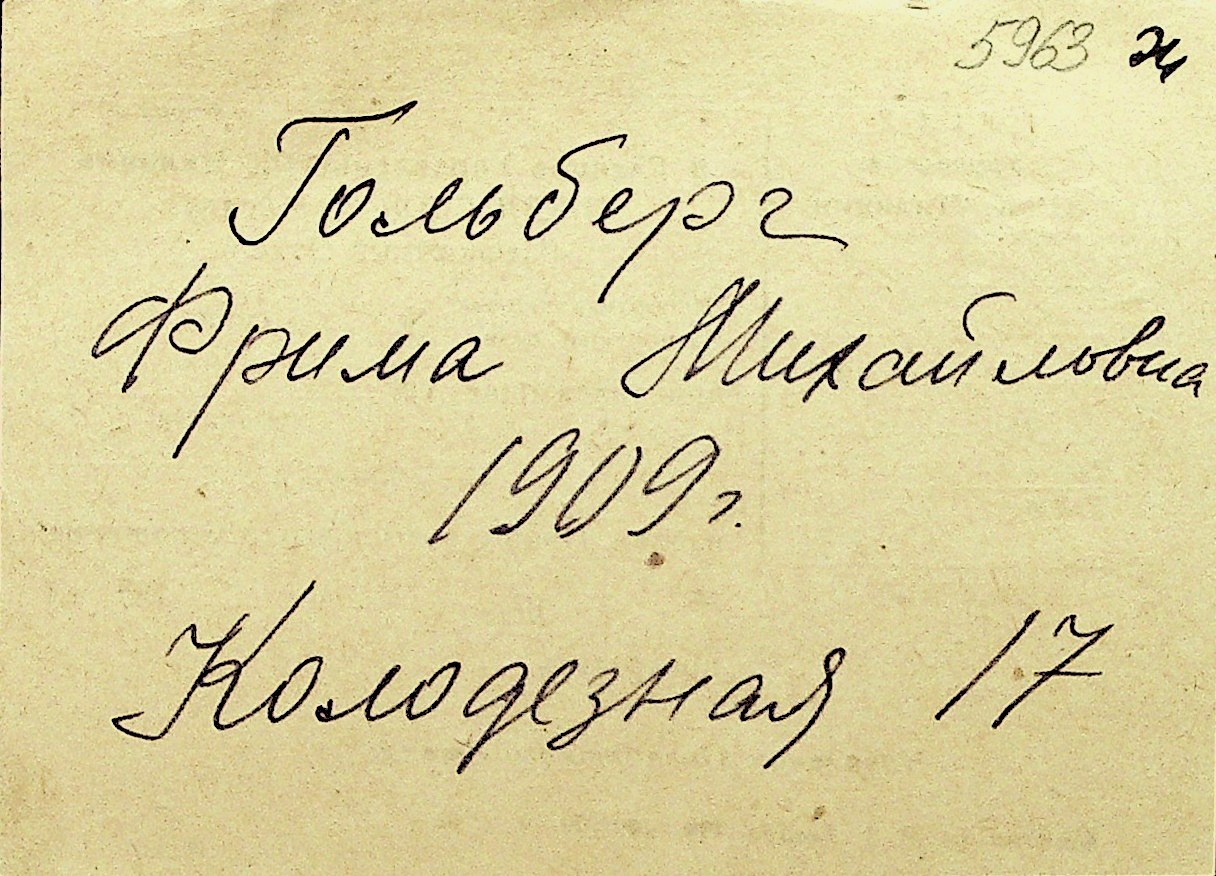 5963 ж
Гольберг
Фрима Михайловна
1909 г.
Колодезная 17